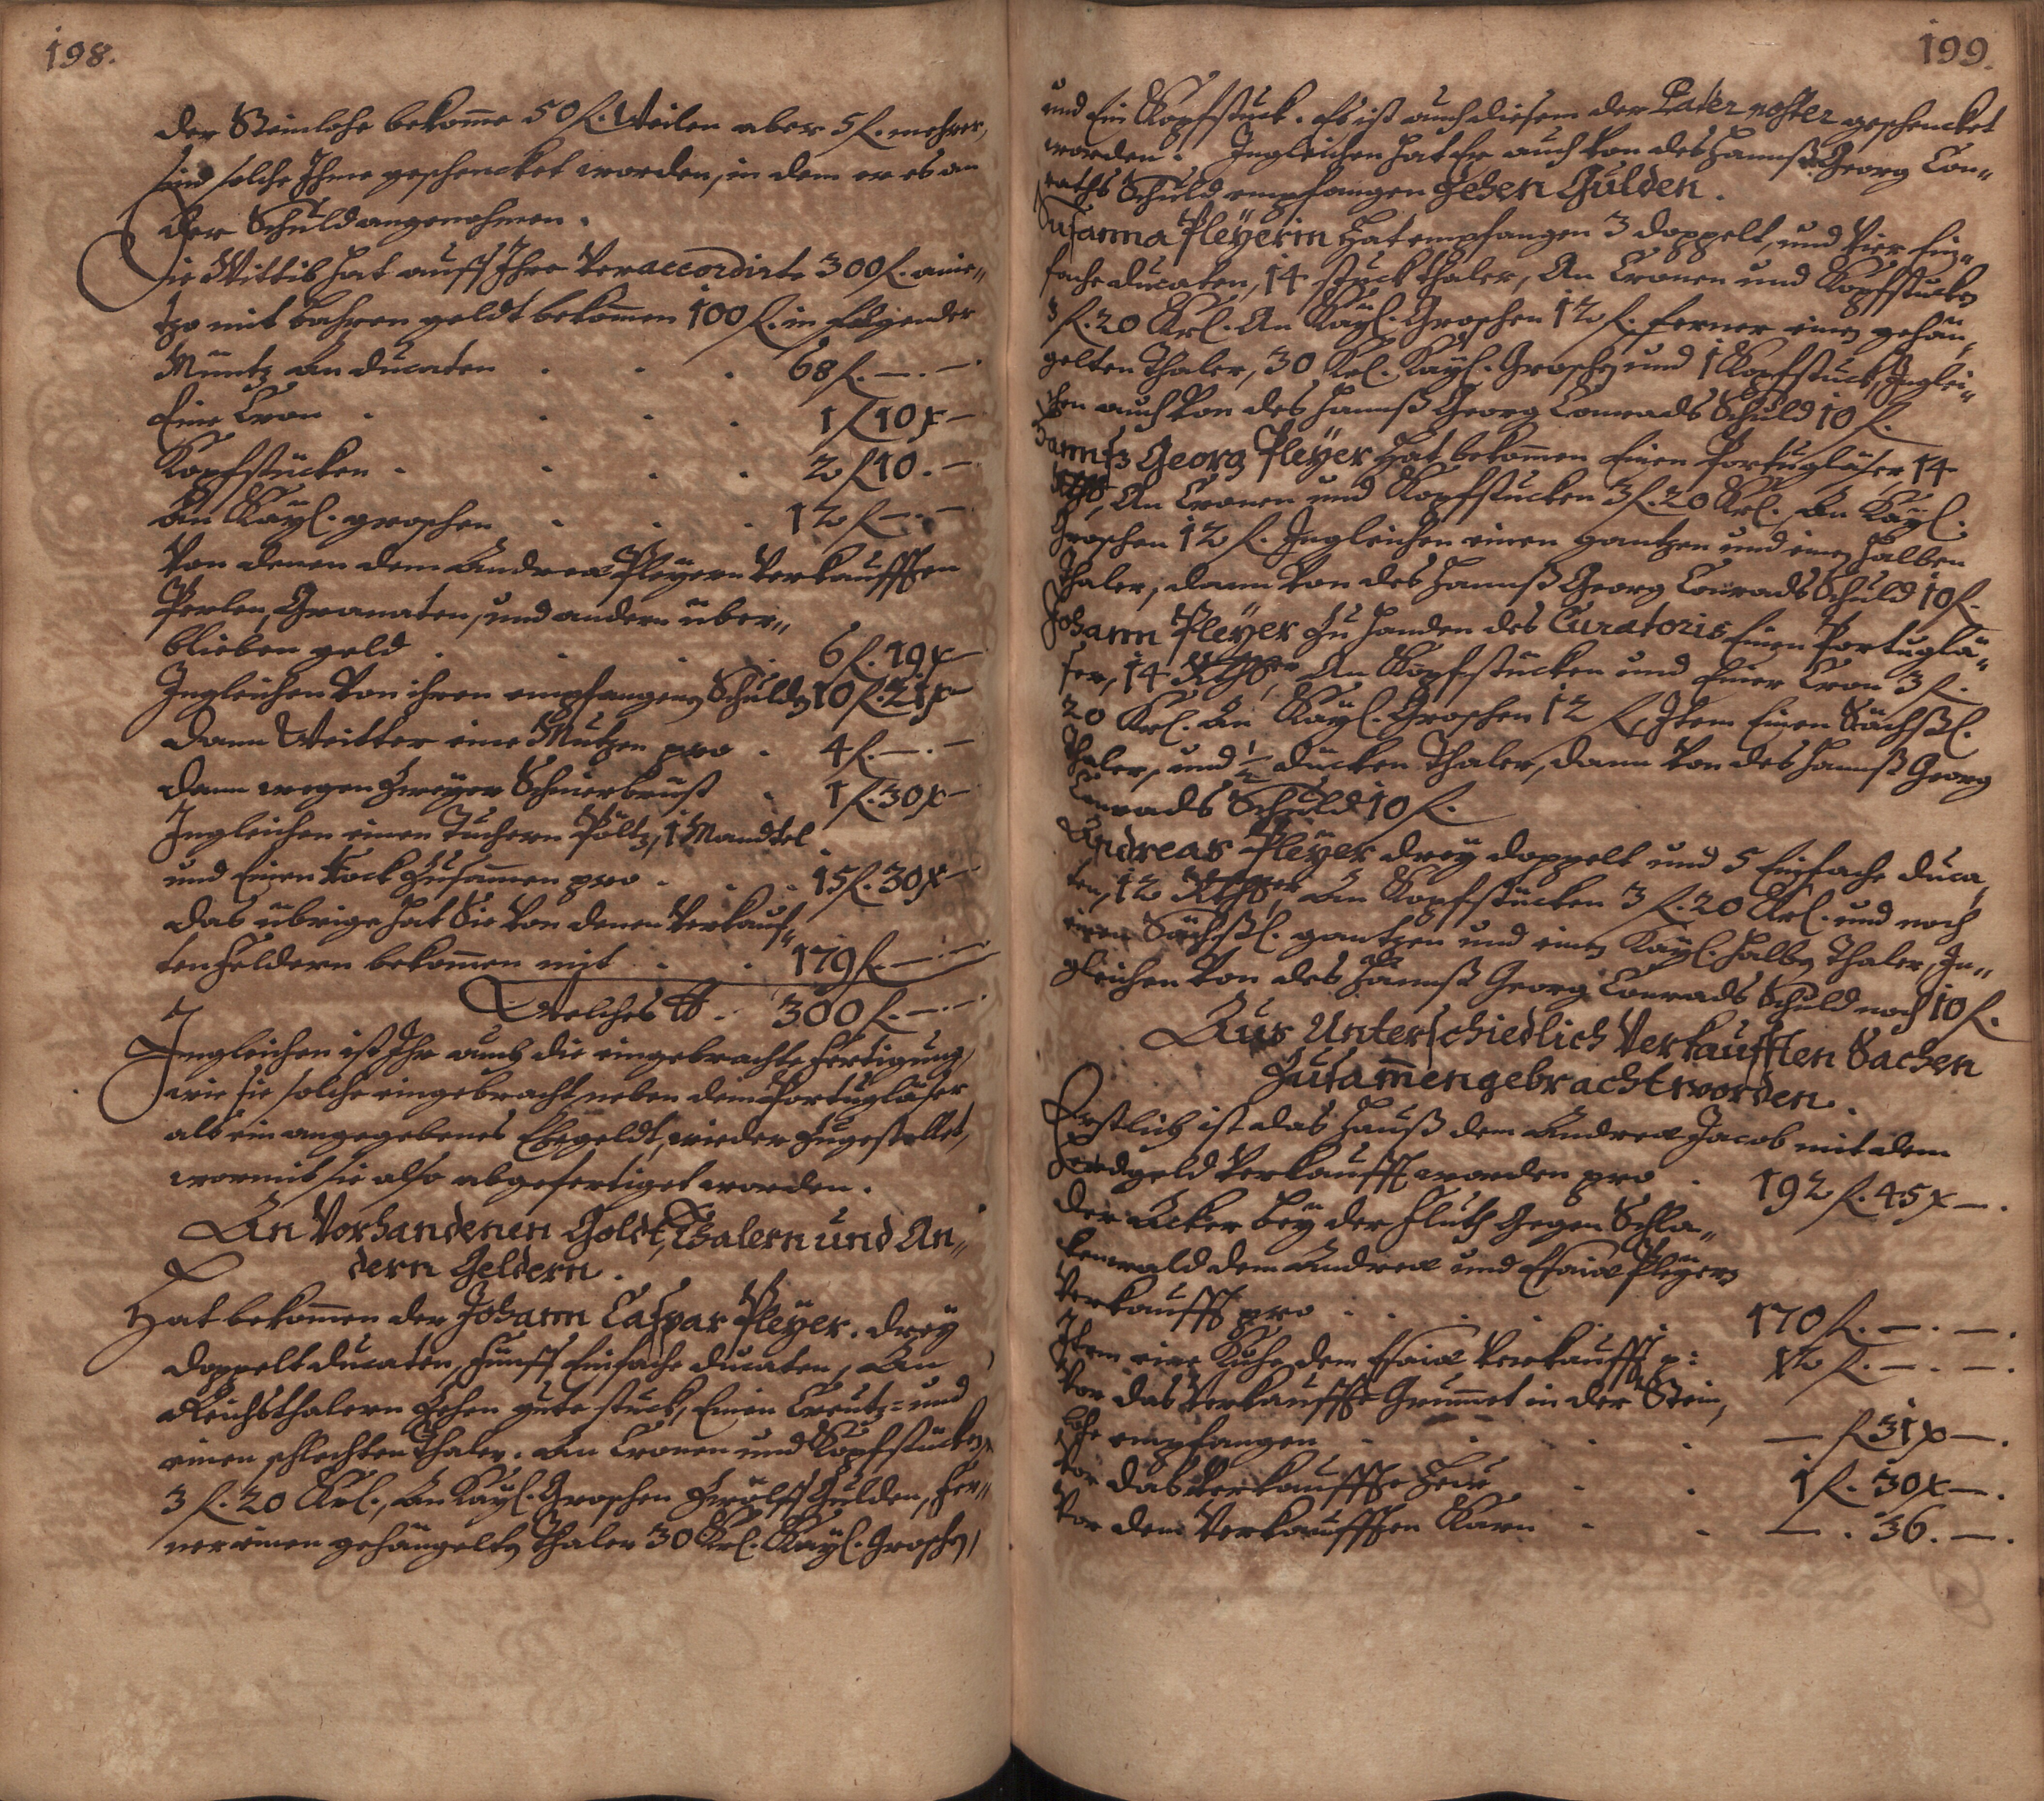 198.
der Steinlohe bekome 50 f. Weilen aber 5 f. mehrer,
sind solche Ihme geschencket worden, in dem er es an
der Schuld angenohmen.
Die Wittib hat auff Ihre Veraccordirte 300 f. anie„
tzo mit bahren geldt bekomen 100 f. in folgender
Müntz An ducaten . . . 68 f. —.—
Eine Cron . . . 1 f 10 x —
Kopfstücken . . . 2 f 10. —
An Kaÿl. groschen . . . 12 f —.—
Von denen dem Andreæ Pleÿern Verkaufften
Perlen, Granaten, und andern über„
blieben geld . . . 6 f. 19 x —
Ingleichen von ihren empfangen Schulden 10 f. 21 x —
dann Weitter eine Mützen pro . 4 f. —.—
dann wegen zweÿer Schnierbrust . 1 f. 30 x —
Ingleichen einen Tüchern Pöltz, 1 Mandtel
und Einen Rock zusamen pro . . . 15 f. 30 x —
das übrige hat Sie von denen Verkauf„
ten Feldern bekomen mit . . 179 f. —.—
Welches . 300 f. —.—
Ingleichen ist Ihr auch die eingebrachte Fertigung,
wie sie solche eingebracht neben dem Portugläser
als ein angegebenes Ehegeldt, wieder zugestellet,
wormit sie also abgefertiget worden.
An Vorhandenen Goldt, Thalern und An„
dern Geldern.
Hat bekomen der Johann Caspar Pleÿer. dreÿ
doppelt ducaten, Fünff Einfache ducaten, An
Reichsthalern Zehen gute stuck, Einen Creutz= und
einen schlechten Thaler. An Cronen und Kopfstücken
3 f. 20 Krl., An Kaÿl. Groschen Zwölff Gulden, Fer„
ner einen gehängelten Thaler 30 Krl. Kaÿl. Groschen,
199.
und Ein Kopfstuck. Es ist auch diesem der Pater noster geschencket
worden. Ingleichen hat Er auch von des Hannß Georg Con„
raths Schuld empfangen Zehen Gulden.
Susanna Pleÿerin Hat empfangen 3 doppelt, und Vier Ein„
fache ducaten, 14 stuck thaler, An Cronen und Kopfstücken
3 f. 20 Krl. An Kaÿl. Groschen 12 f. ferner einen gehän„
gelten Thaler, 30 Krl. Kaÿl. Groschen und 1 Kopfstuck, Inglei„
chen auch von des Hannß Georg Conrads Schuld 10 f.
Hannß Georg Pleÿer Hat bekomen Einen Portugläser, 14
Rthlr, An Cronen und Kopfstücken 3 f. 20 Krl. An Kaÿl.
Groschen 12 f. Ingleichen einen gantzen und einen halben
Thaler, dann von des Hannß Georg Conrads Schuld 10 f.
Johann Pleÿer Zu Handen des Curatoris Einen Portuglä„
ser, 14 Rthlr, An Kopfstücken und Einer Cron 3 f.
20 Krl. An Kaÿl. Groschen 12 f. Item Einen Sächßl.
Thaler, und ½ dücken Thaler, dann von des Hannß Georg
Conrads Schuld 10 f.
Andreas Pleÿer dreÿ doppelt und 5 Einfache duca„
ten, 12 Rthlr, An Kopfstücken 3 f. 20 Krl. und noch
einen Sächßl. gantzen und einen Kaÿl. halben Thaler, In„
gleichen von des Hannß Georg Conrads Schuld noch 10 f.
Aus Unterschiedlich Verkaufften Sachen
Zusammengebracht worden.
Erstlich ist das Hauß dem Andreæ Jacob mit dem
verkaufft worden pro . 192 f. 45 x —.
der Acker beÿ der Fluth gegen Schla„
ckenwald dem Andreæ und Esaiæ Pleÿern
Verkaufft pro . . . 170 f. —. —.
Item eine Kuhe dem Esaiæ Verkaufft p: 12 f. —. —.
Vor das Verkauffte Grummet in der Stein„
lohe empfangen . . . — f 31 x —.
Vor das Verkauffte Heu . . 1 f. 30 x —.
Vor dem Verkaufften Karn . . —. 36. —.